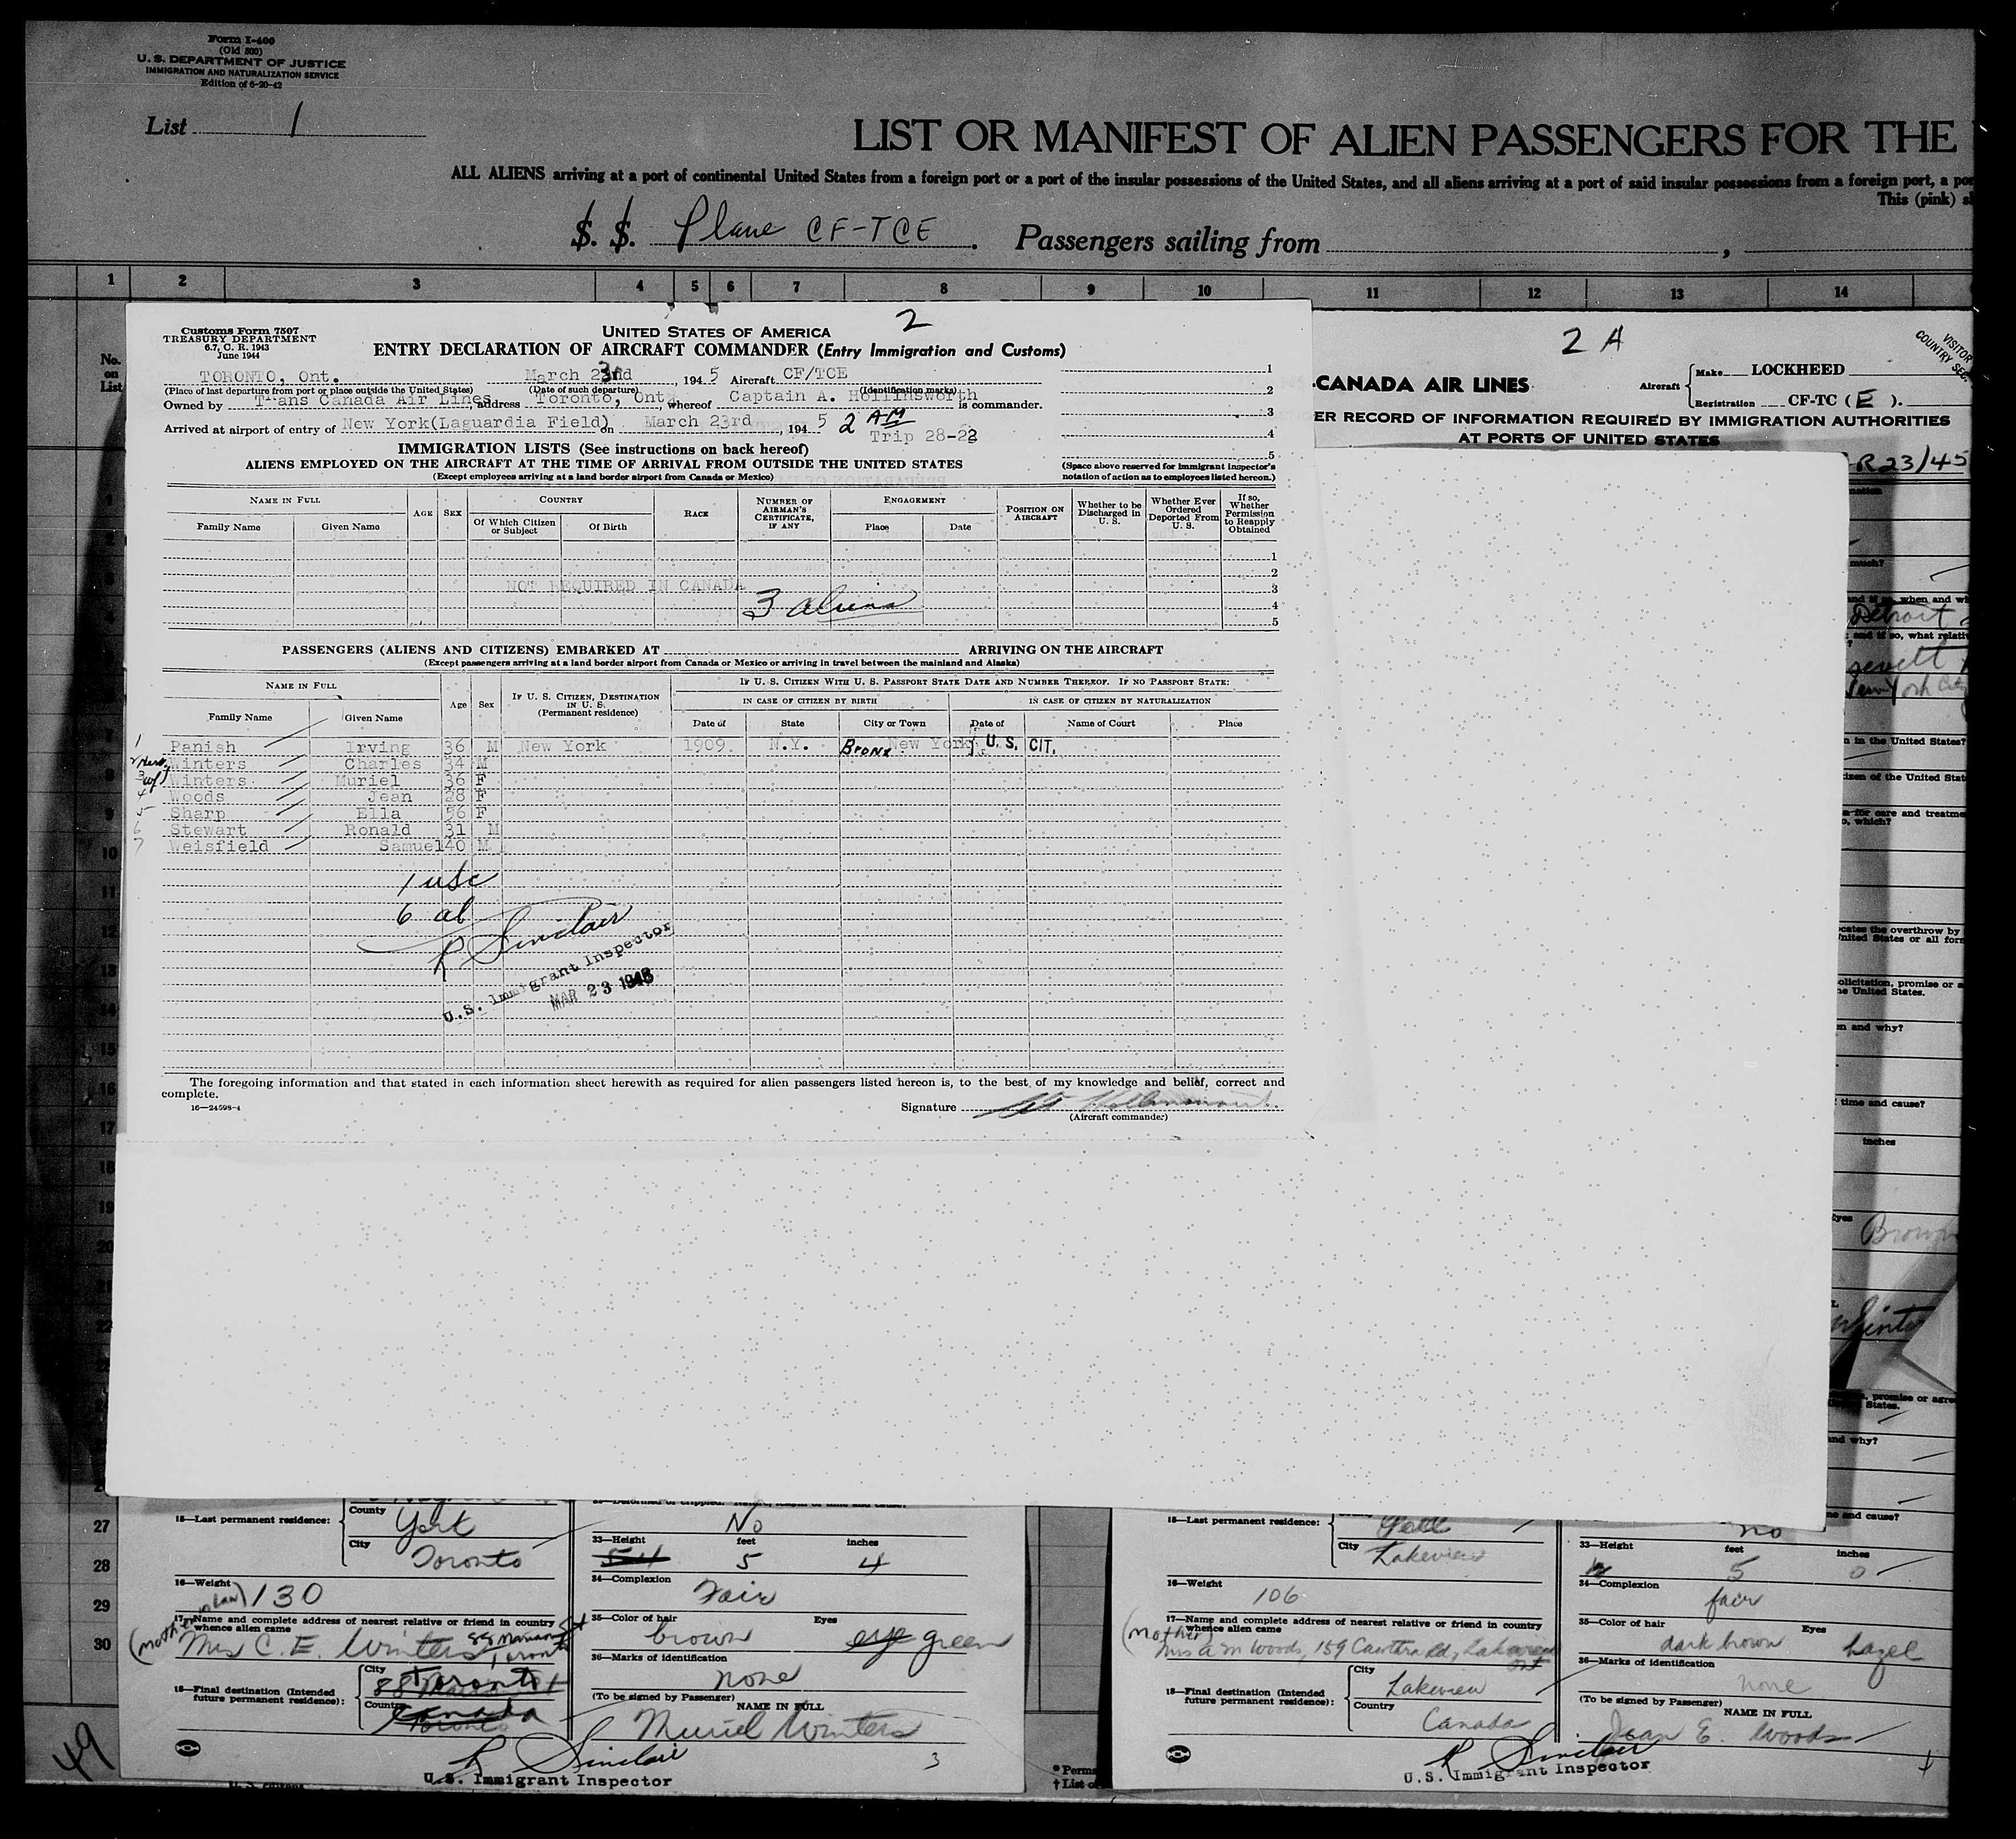 Form I-400
(Old 500)
U. S. DEPARTMENT OF JUSTICE
IMMIGRATION AND NATURALIZATION SERVICE
Edition of 6-20-42
List 1
LIST OR MANIFEST OF ALIEN PASSENGERS FOR THE
ALL ALIENS arriving at a port of continental United States from a foreign port or a port of the insular possessions of the United States, and all aliens arriving at a port of said insular possessions from a foreign port, a
This (pink)
S. S. Plane CF-TCE . Passengers sailing from ,
1 2 3 4 5 6 7 8 9 10 11 12 13 14
No. on List
Customs Form 7507
TREASURY DEPARTMENT
6.7, C. R. 1943
June 1944
UNITED STATES OF AMERICA 2
ENTRY DECLARATION OF AIRCRAFT COMMANDER (Entry Immigration and Customs)
TORONTO, Ont. March 23rd, 1945 Aircraft CF/TCE
(Place of last departure from port or place outside the United States) (Date of such departure) (Identification marks)
Owned by Trans Canada Air Lines, address Toronto, Ont., whereof Captain A. Hollinsworth is commander.
Arrived at airport of entry of New York(Laguardia Field) on March 23rd, 1945 2 AM
Trip 28-22
1
2
3
4
5
(Space above reserved for immigrant inspector's notation of action as to employees listed hereon.)
IMMIGRATION LISTS (See instructions on back hereof)
ALIENS EMPLOYED ON THE AIRCRAFT AT THE TIME OF ARRIVAL FROM OUTSIDE THE UNITED STATES
(Except employees arriving at a land border airport from Canada or Mexico)
NAME IN FULL AGE SEX COUNTRY RACE NUMBER OF AIRMAN'S CERTIFICATE, IF ANY ENGAGEMENT POSITION ON AIRCRAFT Whether to be Discharged in U. S. Whether Ever Ordered Deported From U. S. If so, Whether Permission to Reapply Obtained
Family Name Given Name Of Which Citizen or Subject Of Birth Place Date
1
2
NOT REQUIRED IN CANADA 3
3 aliens 4
5
PASSENGERS (ALIENS AND CITIZENS) EMBARKED AT ARRIVING ON THE AIRCRAFT
(Except passengers arriving at a land border airport from Canada or Mexico or arriving in travel between the mainland and Alaska)
NAME IN FULL Age Sex IF U. S. CITIZEN, DESTINATION IN U. S. (Permanent residence) IF U. S. CITIZEN WITH U. S. PASSPORT STATE DATE AND NUMBER THEREOF. IF NO PASSPORT STATE:
IN CASE OF CITIZEN BY BIRTH IN CASE OF CITIZEN BY NATURALIZATION
Family Name Given Name Date of State City or Town Date of Name of Court Place
1 Panish Irving 36 M New York 1909 N.Y. Bronx New York U.S. CIT.
2 Winters Charles 34 M
3 Winters Muriel 36 F
4 Woods Jean 28 F
5 Sharp Ella 56 F
6 Stewart Ronald 31 M
7 Weisfield Samuel 40 M
1 usc
6 al
R Sinclair
U.S. Immigrant Inspector
MAR 23 1945
The foregoing information and that stated in each information sheet herewith as required for alien passengers listed hereon is, to the best of my knowledge and belief, correct and
complete.
16—24598-4
Signature
(Aircraft commander)
2 A
VISITOR
COUNTRY SEC.
-CANADA AIR LINES
Aircraft Make LOCKHEED
Registration CF-TC ( E ).
ER RECORD OF INFORMATION REQUIRED BY IMMIGRATION AUTHORITIES
AT PORTS OF UNITED STATES
R23/45
much?
Detroit
and if so, what
York City
in the United States?
for care and
which?
the overthrow by
United States or all
solicitation, promise or
the United States.
and why?
time and cause?
inches
Eyes Brown
promise or
States.
and why?
and cause?
27
28
29
30
15—Last permanent residence: County York
City Toronto
16—Weight 130
17—Name and complete address of nearest relative or friend in country whence alien came
Mrs C. E. Winters
18—Final destination (Intended future permanent residence): City Toronto
Country Canada
Toronto
No
33—Height feet inches
5 4
34—Complexion Fair
35—Color of hair Eyes
brown eye green
36—Marks of identification
none
(To be signed by Passenger) NAME IN FULL
Muriel Winters
R Sinclair 3
U.S. Immigrant Inspector
49
* Perma
† List of
15—Last permanent residence: Peel
City Lakeview
16—Weight 106
17—Name and complete address of nearest relative or friend in country whence alien came
(Mother
Mrs A M Woods, 159 Cawthra Rd, Lakeview
Ont
18—Final destination (Intended future permanent residence): City Lakeview
Country Canada
no
33—Height feet inches
5 0
34—Complexion fair
35—Color of hair Eyes
dark brown hazel
36—Marks of identification
none
(To be signed by Passenger) NAME IN FULL
Jean E. Woods
R Sinclair
U.S. Immigrant Inspector